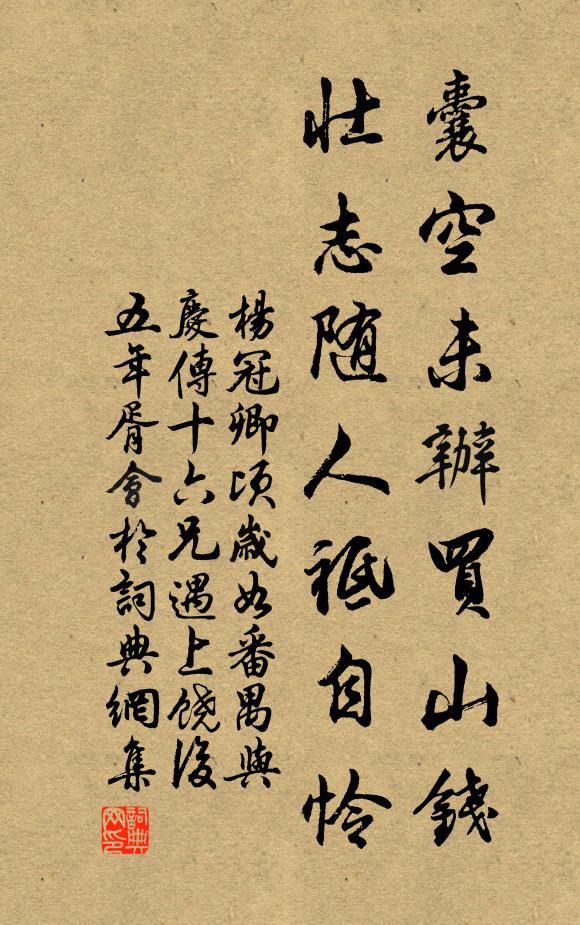 囊空未辦買山錢
壯志随人祗自怜
楊冠卿頃歲如番禺與
慶傳十六兄遇上饒後
五年胥會於詞典網集
詞典网印